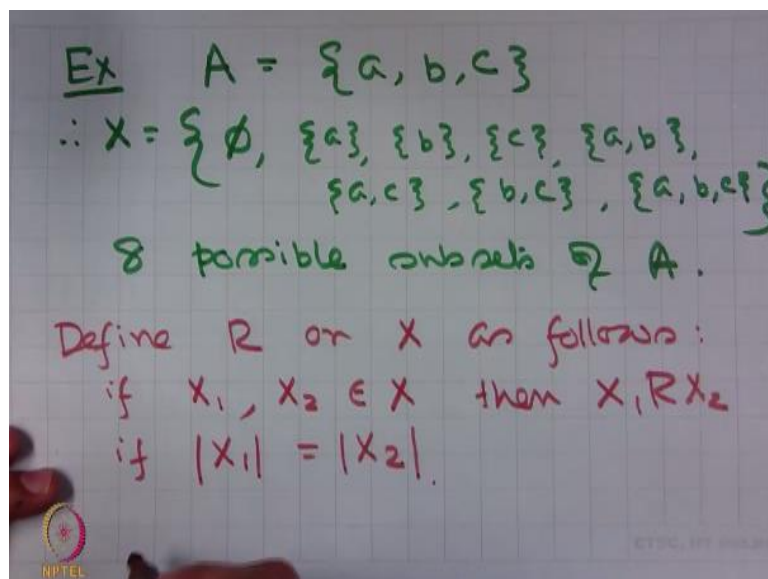 Ex A = {a, b, c}
∴ X = { ∅, {a}, {b}, {c}, {a,b},
{a,c}, {b,c}, {a,b,c} }
8 possible subsets of A.
Define R on X as follows:
if X₁, X₂ ∈ X then X₁RX₂
if |X₁| = |X₂|.
NPTEL